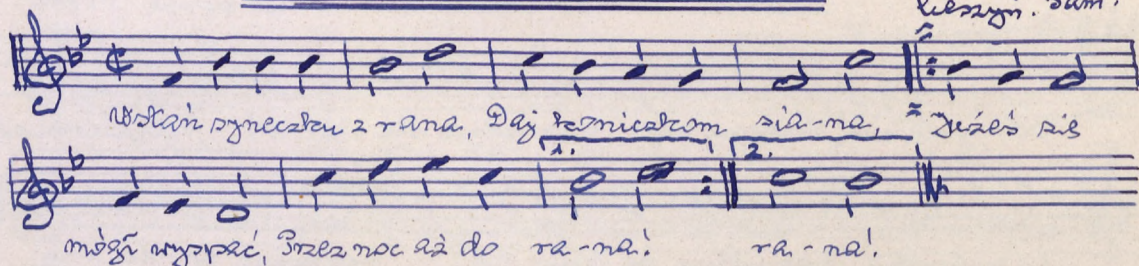 Cieszyn.
Wstań syneczku z rana, Daj koniczkom sia-na, Jeżeś sie
1. 2.
mógł wyspać, Przez noc aż do ra-na! ra-na!